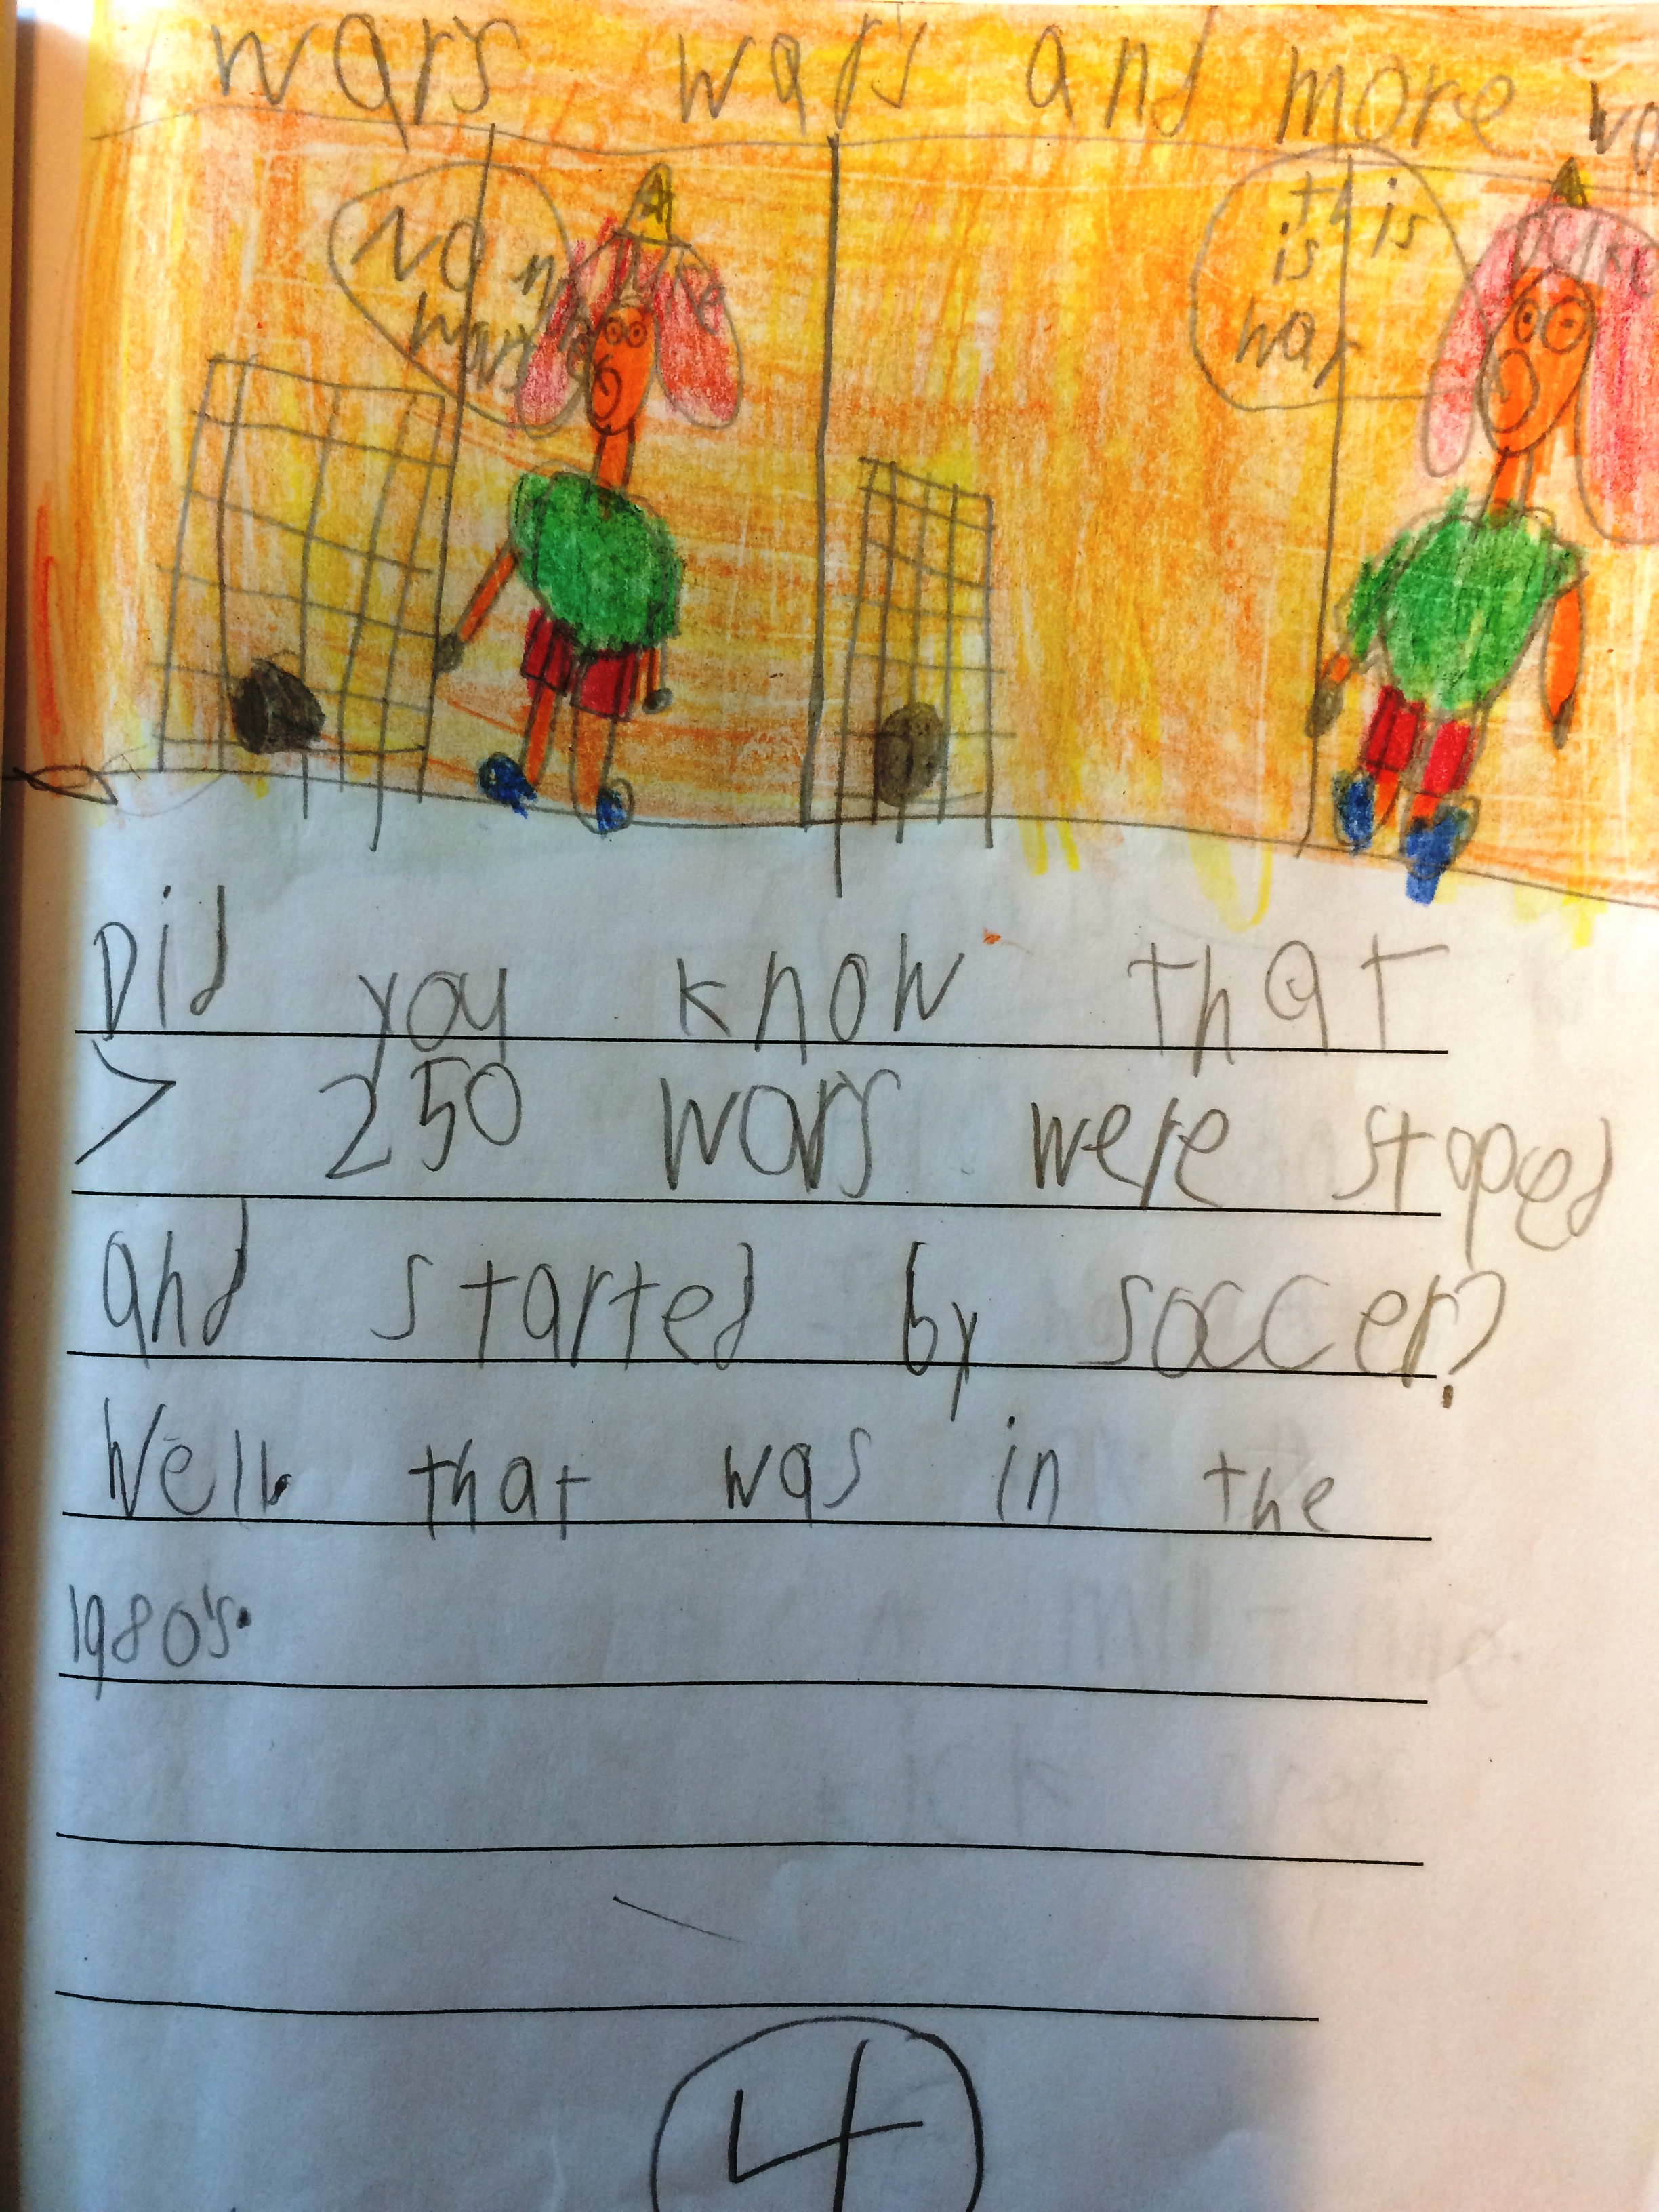 wars wars and more
NO
wars
this
is
war
Did you know that
> 250 wars were stoped
and started by soccer?
Well that was in the
1980's.
4